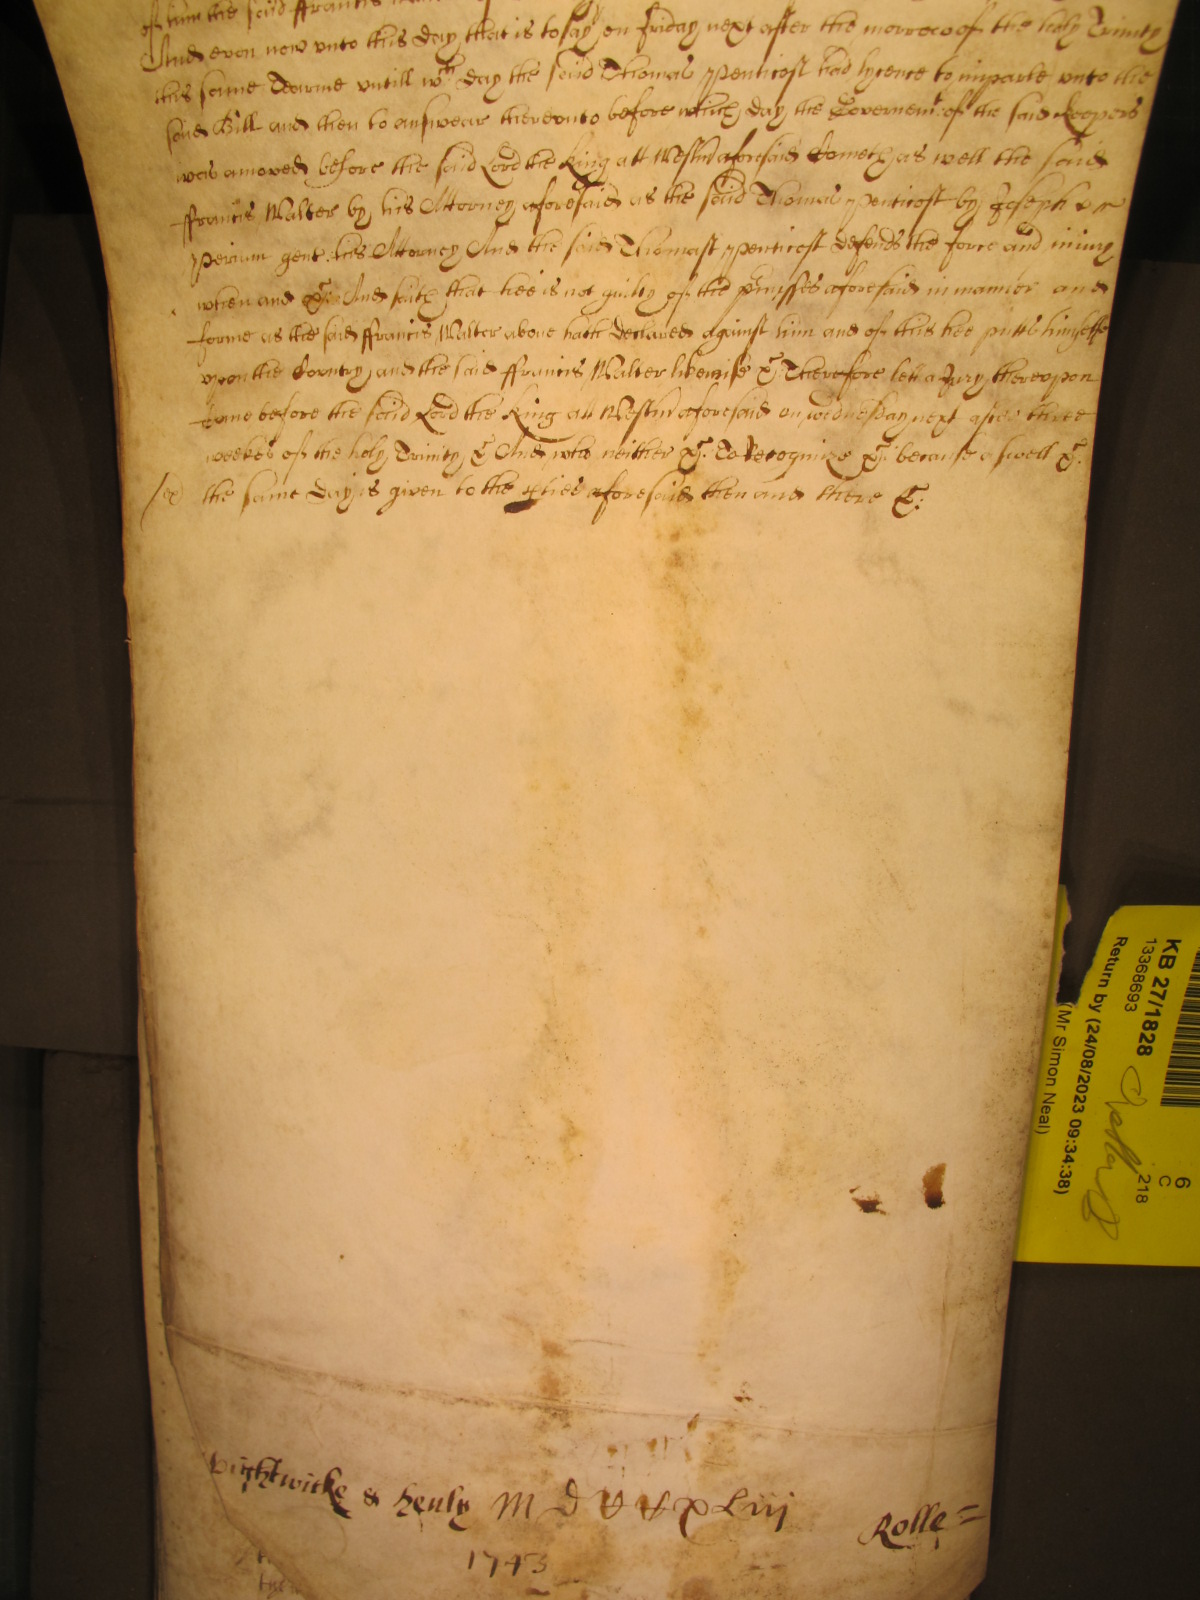 of him the said Francis
And even now unto this day that is to say on Friday next after the morrow of the holy Trinity
this same Tearme untill wch day the said Thomas Penticost had lycence to imparle unto the
said Bill and then to answear thereunto before which day the Governemt of the said Keepers
was amoved before the said Lord the King att Westm aforesaid Cometh as well the said
ffrancis Walter by his Attorney aforesaid as the said Thomas Penticost by Joseph
gent his Attorney And the said Thomas Penticost defends the force and iniury
when and &c. And saith that hee is not guilty of the pmisses aforesaid in manner and
forme as the said ffrancis Walter above hath declared against him and of this hee putts himselfe
upon the Country and the said ffrancis Walter likewise &c Therefore lett a Jury thereupon
come before the said Lord the King att Westm aforesaid on wednesday next after three
weekes of the holy Trinity &c And who neither &c. To Recognize &c. because aswell &c.
the same day is given to the pties aforesaid then and there &c:
& Henly M D xLiij
Rolle =
1743
KB 27/1828
13368693
Return by (24/08/2023 09:34:38)
(Mr Simon Neal)
6
C
218